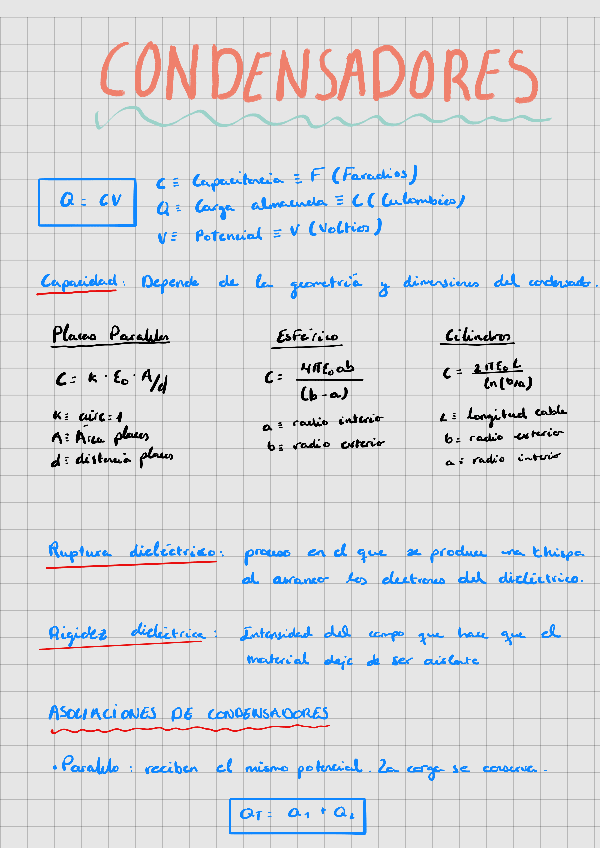 CONDENSADORES
Q = CV
C ≡ Capacitancia ≡ F (Faradios)
Q ≡ Carga almacenada ≡ C (Culombios)
V ≡ Potencial ≡ V (Voltios)
Capacidad: Depende de la geometría y dimensiones del condensador.
Placas Paralelas
C = K · ε0 · A/d
K ≡ aire = 1
A ≡ Área placas
d ≡ distancia placas
Esférico
C = 4πε0ab / (b-a)
a ≡ radio interior
b ≡ radio exterior
Cilindros
C = 2πε0L / ln(b/a)
L ≡ Longitud cable
b ≡ radio exterior
a ≡ radio interior
Ruptura dieléctrico: proceso en el que se produce una chispa
al arrancar los electrones del dieléctrico.
Rigidez dieléctrica: Intensidad del campo que hace que el
material deje de ser aislante
ASOCIACIONES DE CONDENSADORES
· Paralelo: reciben el mismo potencial. La carga se conserva.
QT = Q1 + Q2